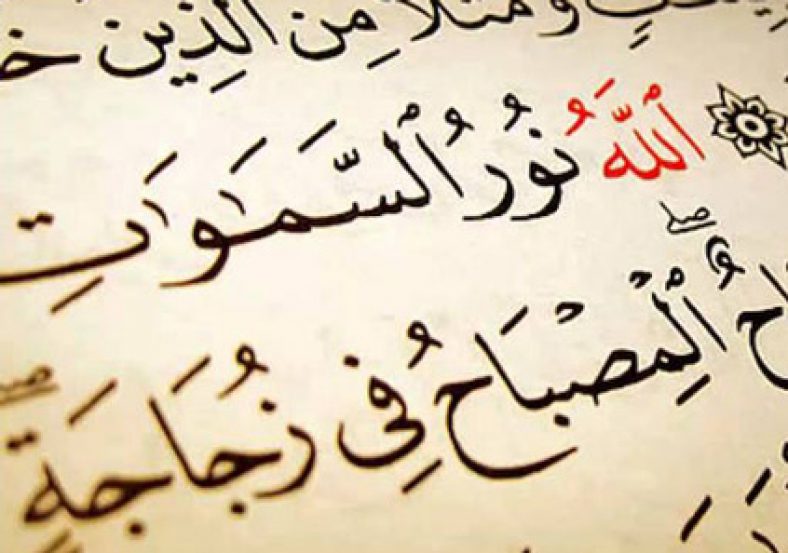 وَمَثَلًا مِّنَ ٱلَّذِينَ
۞ ٱللَّهُ نُورُ ٱلسَّمَٰوَٰتِ
ٱلْمِصْبَاحُ فِى زُجَاجَةٍ ۖ